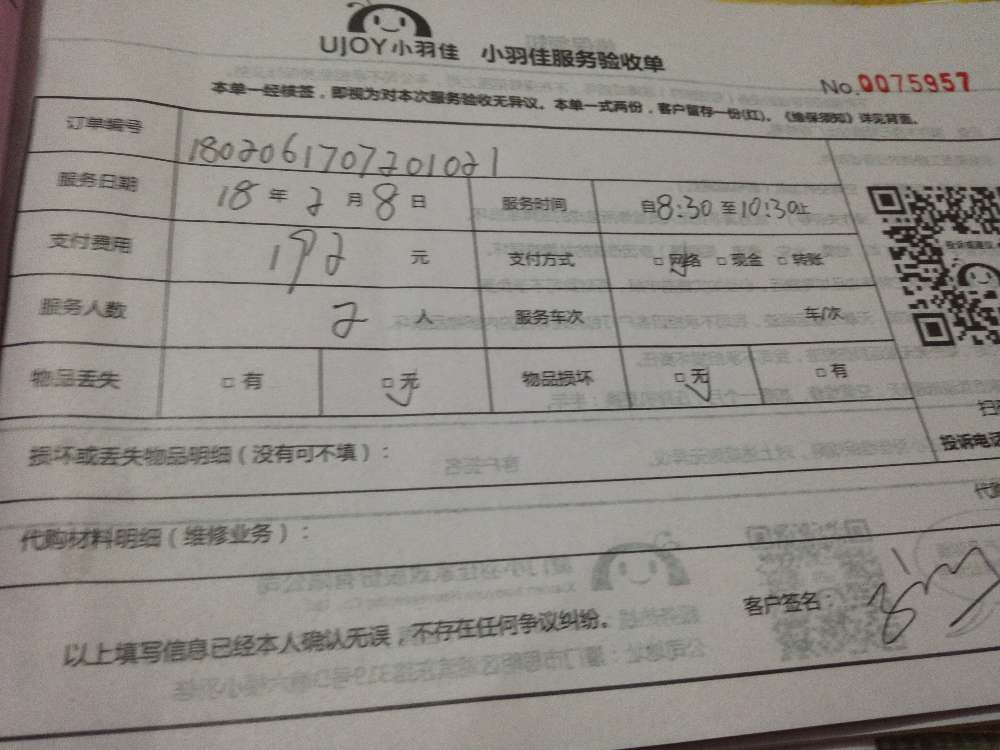 UJOY小羽佳 小羽佳服务验收单
No.0075957
本单一经核签，即视为对本次服务验收无异议。本单一式两份，客户留存一份(红)。《维保须知》详见背面。
订单编号 1802061707201021
服务日期 18年2月8日 服务时间 自8:30至10:30止
支付费用 192元 支付方式 □网络 □现金 □转账
服务人数 2人 服务车次 车/次
物品丢失 □有 □无 物品损坏 □无 □有
投诉电话
损坏或丢失物品明细（没有可不填）：
代购材料明细（维修业务）：
代购
客户签名：
以上填写信息已经本人确认无误，不存在任何争议纠纷。